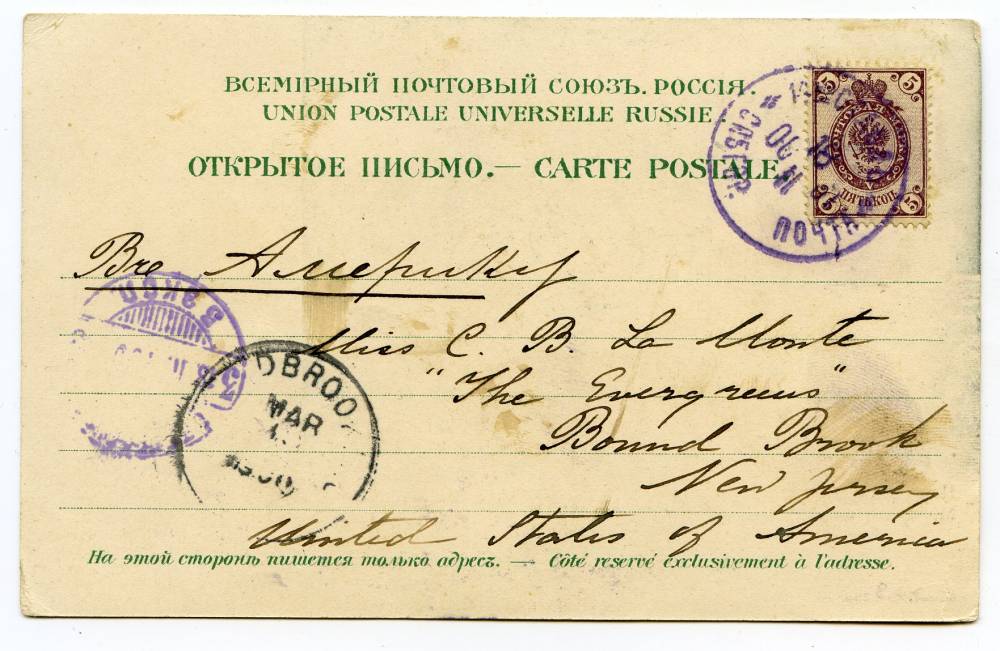 ВСЕМІРНЫЙ ПОЧТОВЫЙ СОЮЗЪ. РОССІЯ.
UNION POSTALE UNIVERSELLE RUSSIE.
ОТКРЫТОЕ ПИСЬМО. — CARTE POSTALE.
5 5
ПОЧТОВАЯ МАРКА
ПЯТЬ КОП.
5 5
ПОЧТ
Америку
Miss C. B. La Monte
"The Evergreens"
Bound Brook
New Jersey
United States of America
DBROO
MAR
На этой сторонѣ пишется только адресъ. — Côté reservé exclusivement à l'adresse.